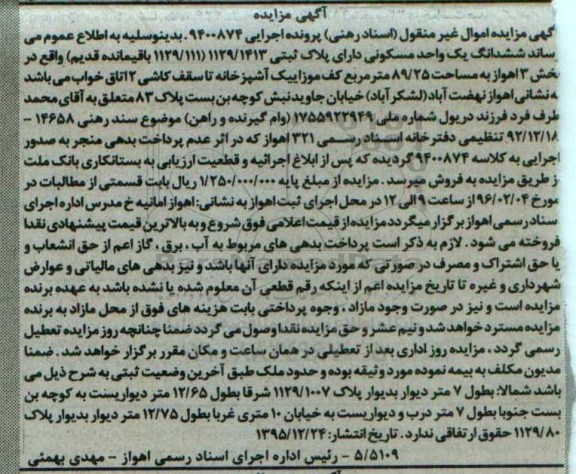 آگهی مزایده
گهی مزایده اموال غیر منقول (اسناد رهنی) پرونده اجرایی ۹۴۰۰۸۷۴. بدینوسلیه به اطلاع عموم می
ساند ششدانگ یک واحد مسکونی دارای پلاک ثبتی ۱۱۲۹/۱۴۱۳ (۱۱۲۹/۱۱۱ باقیمانده قدیم) واقع در
بخش ۳ اهواز به مساحت ۸۹/۲۵ متر مربع کف موزاییک آشپزخانه تا سقف کاشی ۲ اتاق خواب می باشد
به نشانی اهواز نهضت آباد (لشکر آباد) خیابان جاوید نبش کوچه بن بست پلاک ۸۳ متعلق به آقای محمد
طرف فرد فرزند دریول شماره ملی ۱۷۵۵۹۲۲۹۴۹ (وام گیرنده و راهن) موضوع سند رهنی ۱۴۶۵۸ –
۹۲/۱۲/۱۸ تنظیمی دفتر خانه اسناد رسمی ۳۲۱ اهواز که در اثر عدم پرداخت بدهی منجر به صدور
اجرایی به کلاسه ۹۴۰۰۸۷۴ گردیده که پس از ابلاغ اجرائیه و قطعیت ارزیابی به بستانکاری بانک ملت
ز طریق مزایده به فروش میرسد. مزایده از مبلغ پایه ۱/۲۵۰/۰۰۰/۰۰۰ ریال بابت قسمتی از مطالبات در
مورخ ۹۶/۰۲/۰۴ از ساعت ۹ الی ۱۲ در محل اجرای ثبت اهواز به نشانی: اهواز امانیه خ مدرس اداره اجرای
سناد رسمی اهواز برگزار میگردد مزایده از قیمت اعلامی فوق شروع و به بالاترین قیمت پیشنهادی نقدا
فروخته می شود. لازم به ذکر است پرداخت بدهی های مربوط به آب، برق، گاز اعم از حق انشعاب و
یا حق اشتراک و مصرف در صورتی که مورد مزایده دارای آنها باشد و نیز بدهی های مالیاتی و عوارض
شهرداری و غیره تا تاریخ مزایده اعم از اینکه رقم قطعی آن معلوم شده یا نشده باشد به عهده برنده
مزایده است و نیز در صورت وجود مازاد، وجوه پرداختی بابت هزینه های فوق از محل مازاد به برنده
مزایده مسترد خواهد شد و نیم عشر و حق مزایده نقدا وصول می گردد ضمنا چنانچه روز مزایده تعطیل
رسمی گردد، مزایده روز اداری بعد از تعطیلی در همان ساعت و مکان مقرر برگزار خواهد شد. ضمنا
مدیون مکلف به بیمه نموده مورد وثیقه بوده و حدود ملک طبق آخرین وضعیت ثبتی به شرح ذیل می
باشد شمالا: بطول ۷ متر دیوار بدیوار پلاک ۱۱۲۹/۱۰۰۷ شرقا بطول ۱۲/۶۵ متر دیواریست به کوچه بن
بست جنوبا بطول ۷ متر درب و دیواریست به خیابان ۱۰ متری غربا بطول ۱۲/۷۵ متر دیوار بدیوار پلاک
۱۱۲۹/۸۰ حقوق ارتفاقی ندارد. تاریخ انتشار: ۱۳۹۵/۱۲/۲۴
۵/۵۱۰۹ – رئیس اداره اجرای اسناد رسمی اهواز – مهدی بهمئی